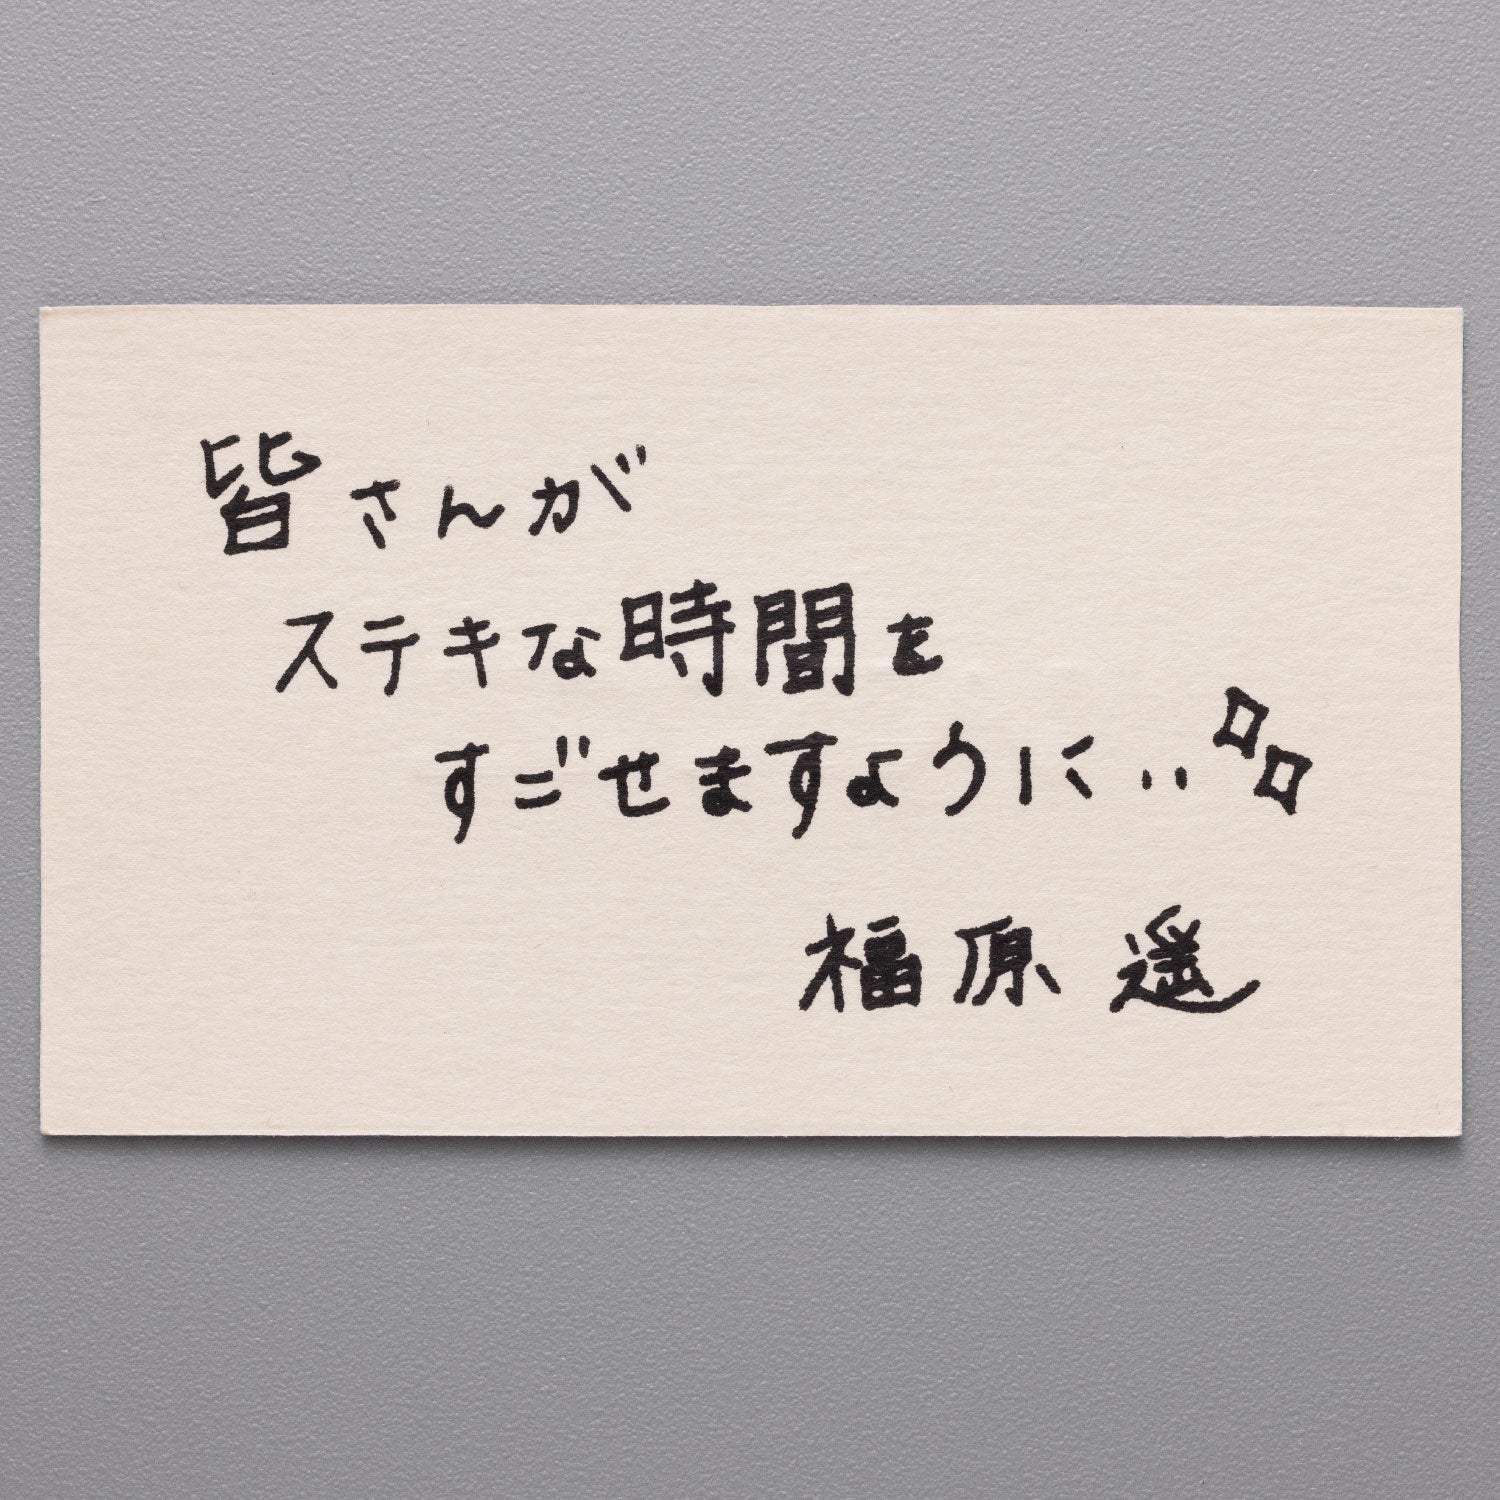 皆さんが
ステキな時間を
すごせますように‥
福原遥